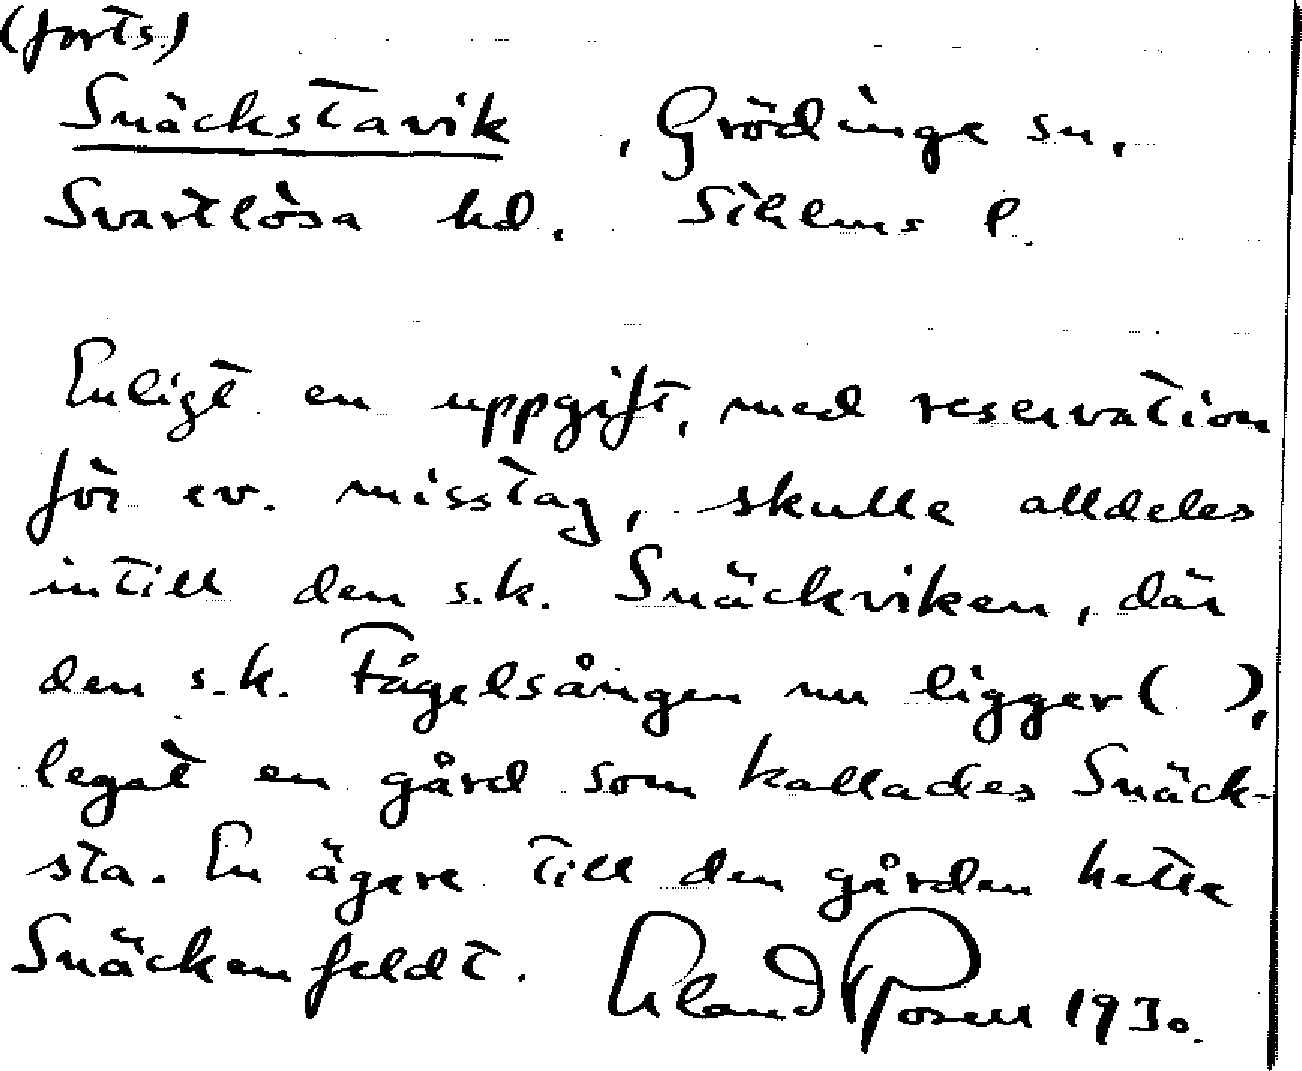 (forts)
Snäckstavik , Grödinge sn,
Svartlösa hd. Sthlms l.
Enligt en uppgift, med reservation
för ev. misstag, skulle alldeles
intill den s.k. Snäckviken, där
den s.k. Fågelsången nu ligger ( ),
legat en gård som kallades Snäck-
sta. En ägare till den gården hette
Snäckenfeldt. Rosell 1930.